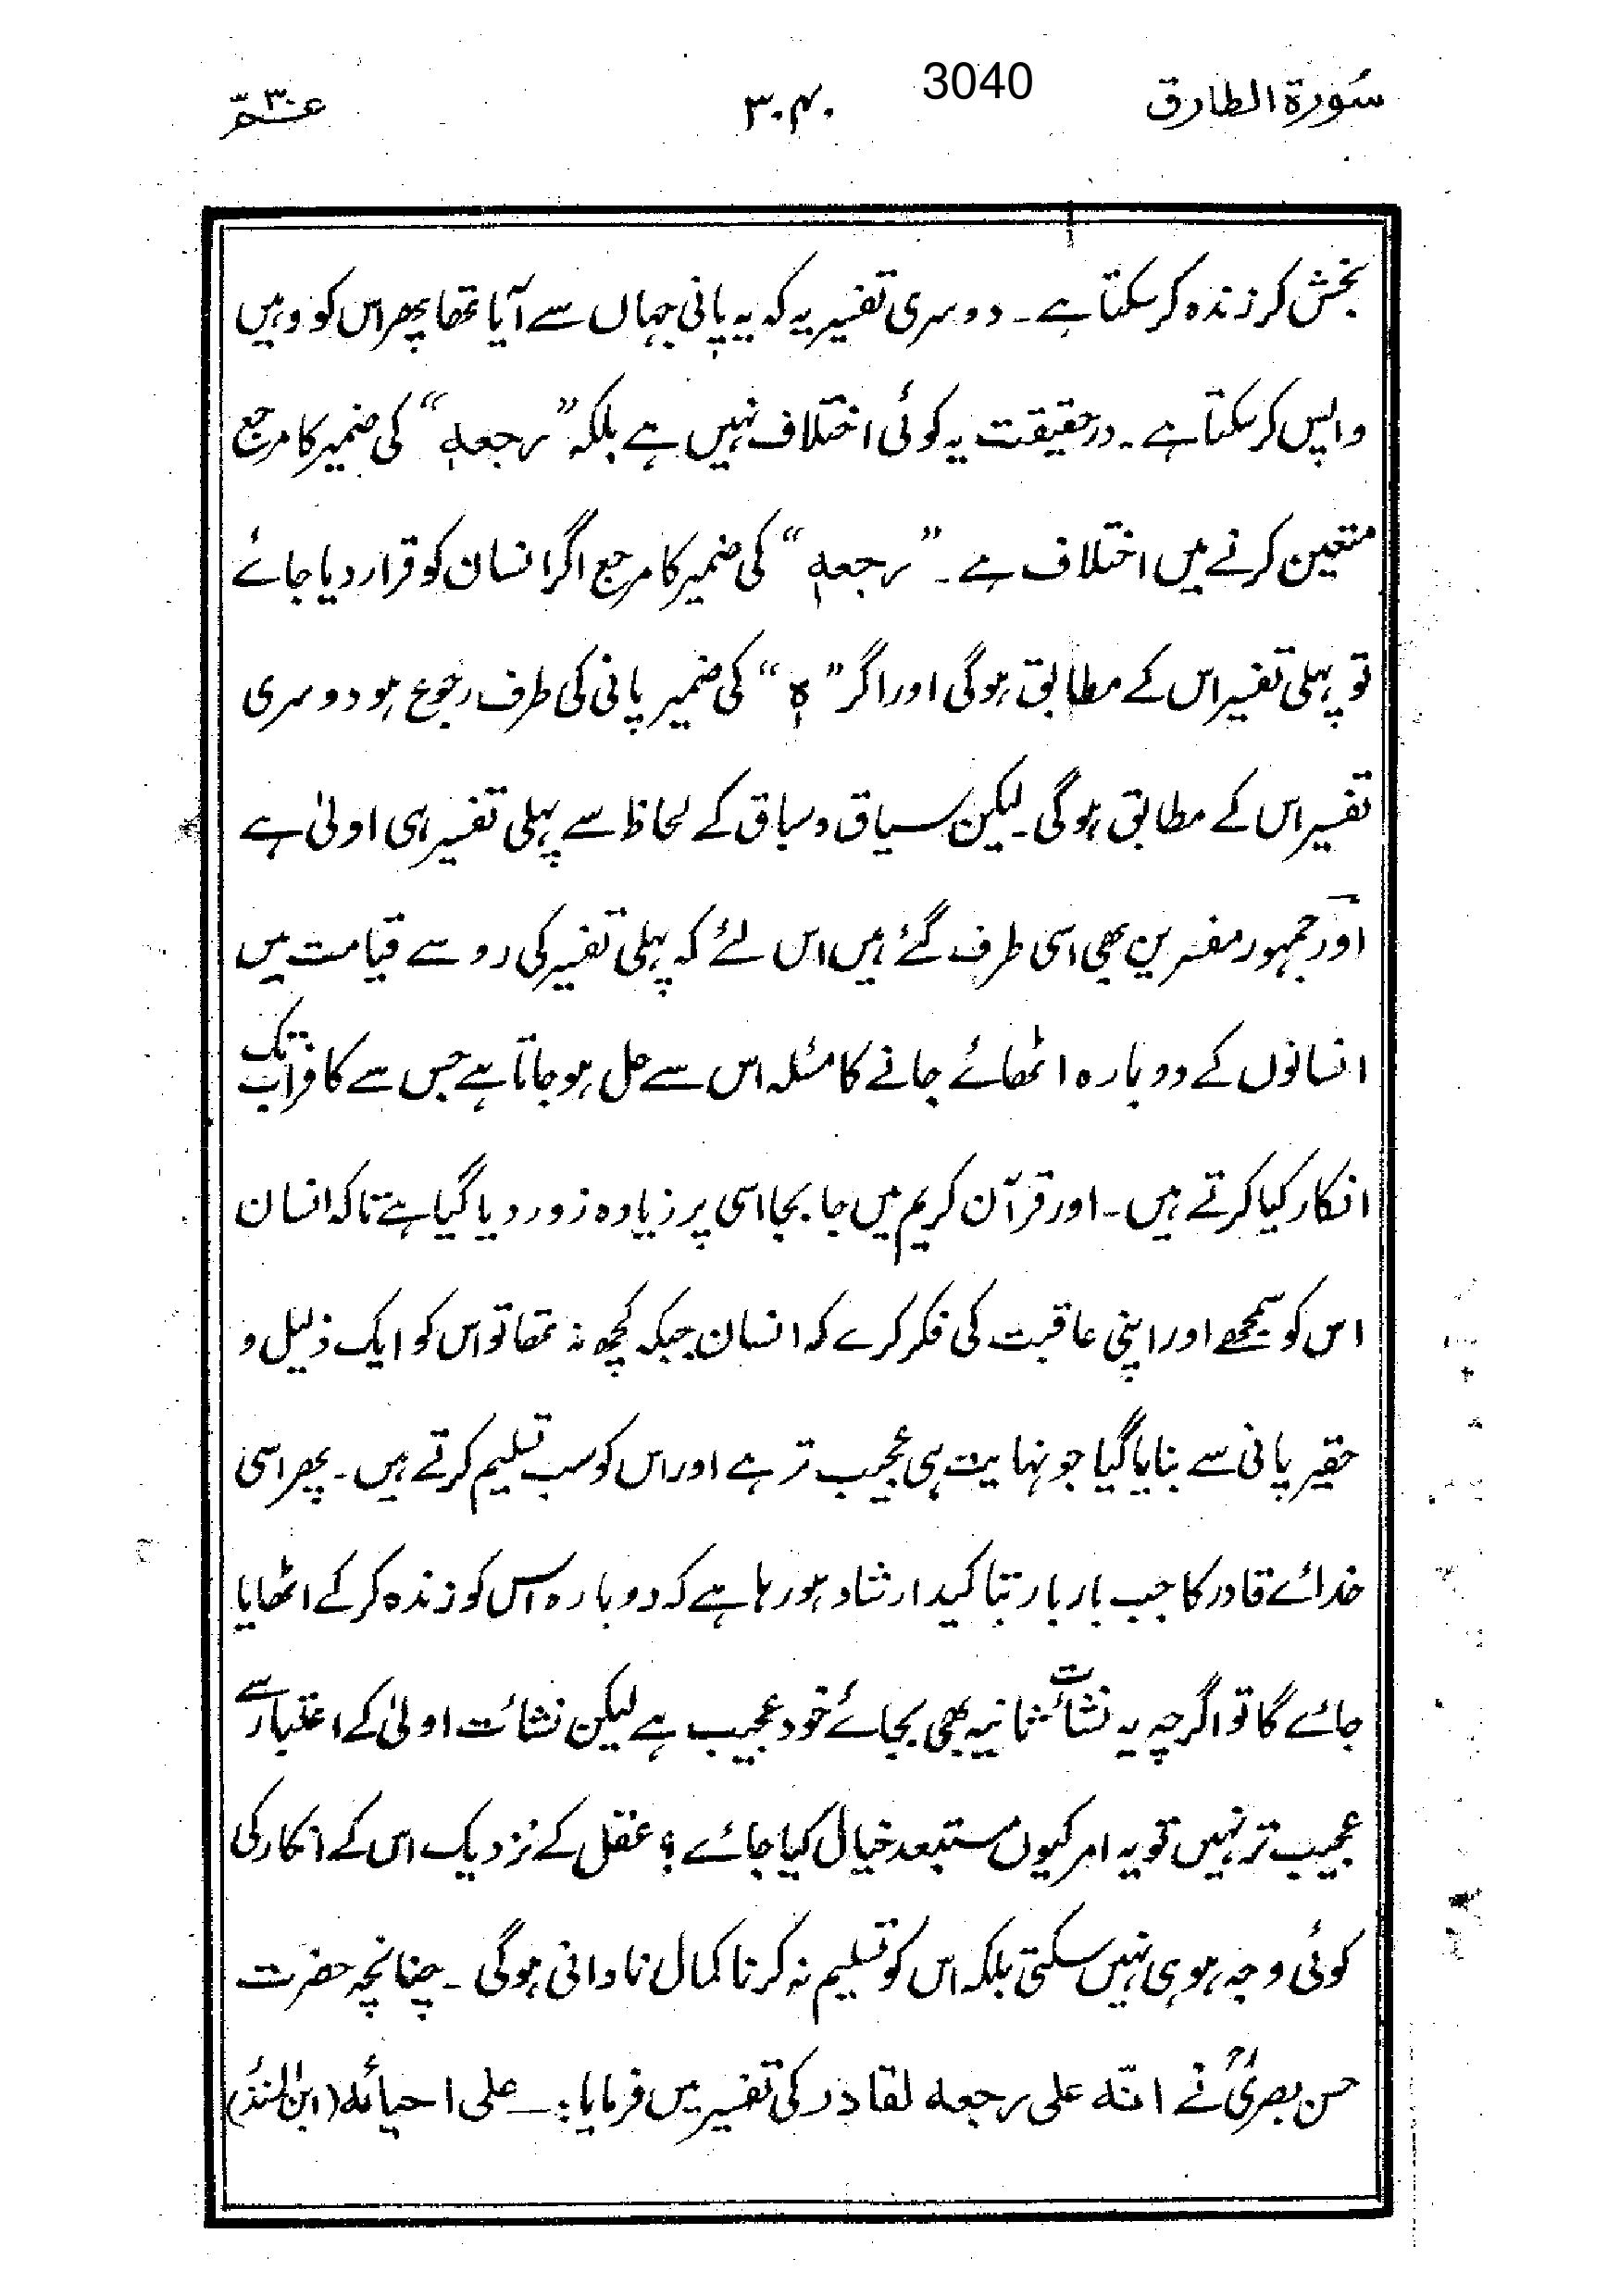 سُورة الطارق 3040 ۳۰۴۰ عمّ ۳۰
بخش کر زندہ کر سکتا ہے۔ دوسری تفسیر یہ کہ یہ پانی جہاں سے آیا تھا پھر اس کو وہیں
واپس کر سکتا ہے۔ درحقیقت یہ کوئی اختلاف نہیں ہے بلکہ ”رجعہٖ“ کی ضمیر کا مرجع
متعین کرنے میں اختلاف ہے۔ ”رجعہٖ“ کی ضمیر کا مرجع اگر انسان کو قرار دیا جائے
تو پہلی تفسیر اس کے مطابق ہوگی اور اگر ”ہٖ“ کی ضمیر پانی کی طرف رجوع ہو دوسری
تفسیر اس کے مطابق ہوگی۔ لیکن سیاق و سباق کے لحاظ سے پہلی تفسیر ہی اولیٰ ہے
اور جمہور مفسرین بھی اسی طرف گئے ہیں اس لئے کہ پہلی تفسیر کی رو سے قیامت میں
انسانوں کے دوبارہ اٹھائے جانے کا مسئلہ اس سے حل ہو جاتا ہے جس سے کافر اب تک
انکار کیا کرتے ہیں۔ اور قرآن کریم میں جا بجا اسی پر زیادہ زور دیا گیا ہے تاکہ انسان
اس کو سمجھے اور اپنی عاقبت کی فکر کرے کہ انسان جبکہ کچھ نہ تھا تو اس کو ایک ذلیل و
حقیر پانی سے بنایا گیا جو نہایت ہی عجیب تر ہے اور اس کو سب تسلیم کرتے ہیں۔ پھر اسی
خدائے قادر کا جب بار بار بتاکید ارشاد ہو رہا ہے کہ دوبارہ اس کو زندہ کر کے اٹھایا
جائے گا تو اگرچہ یہ نشائت ثانیہ بھی بجائے خود عجیب ہے لیکن نشائت اولیٰ کے اعتبار سے
عجیب تر نہیں تو یہ امر کیوں مستبعد خیال کیا جائے؟ عقل کے نزدیک اس کے انکار کی
کوئی وجہ ہو ہی نہیں سکتی بلکہ اس کو تسلیم نہ کرنا کمال نادانی ہوگی۔ چنانچہ حضرت
حسن بصریؒ نے انّہ علی رجعہ لقادر کی تفسیر میں فرمایا:۔ علی احیائہ (ابن المنذر)